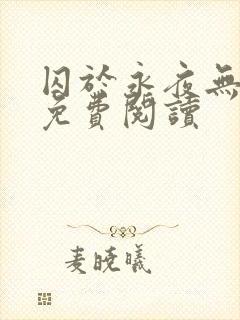 囚於永夜無
免費閱讀
麦曉曦